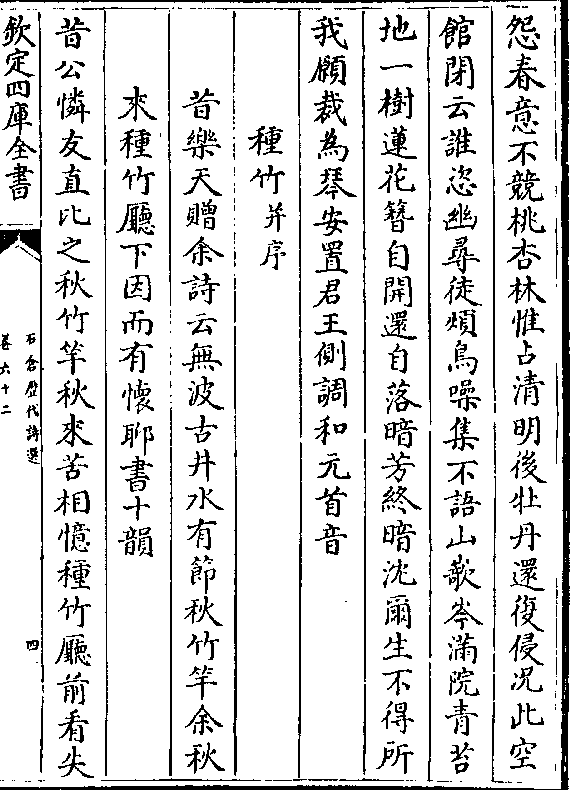 怨春意不競桃杏林惟占清明後牡丹還復侵况此空
館閉云誰恣幽尋徒煩鳥噪集不語山嶔岑滿院青苔
地一樹蓮花簪自開還自落暗芳終暗沈爾生不得所
我願裁為琴安置君王側調和元首音
種竹并序
昔樂天贈余詩云無波古井水有節秋竹竿余秋
來種竹廳下因而有懷聊書十韻
昔公憐友直比之秋竹竿秋來苦相憶種竹廳前看失
欽定四庫全書
石倉歷代詩選
卷六十二
四